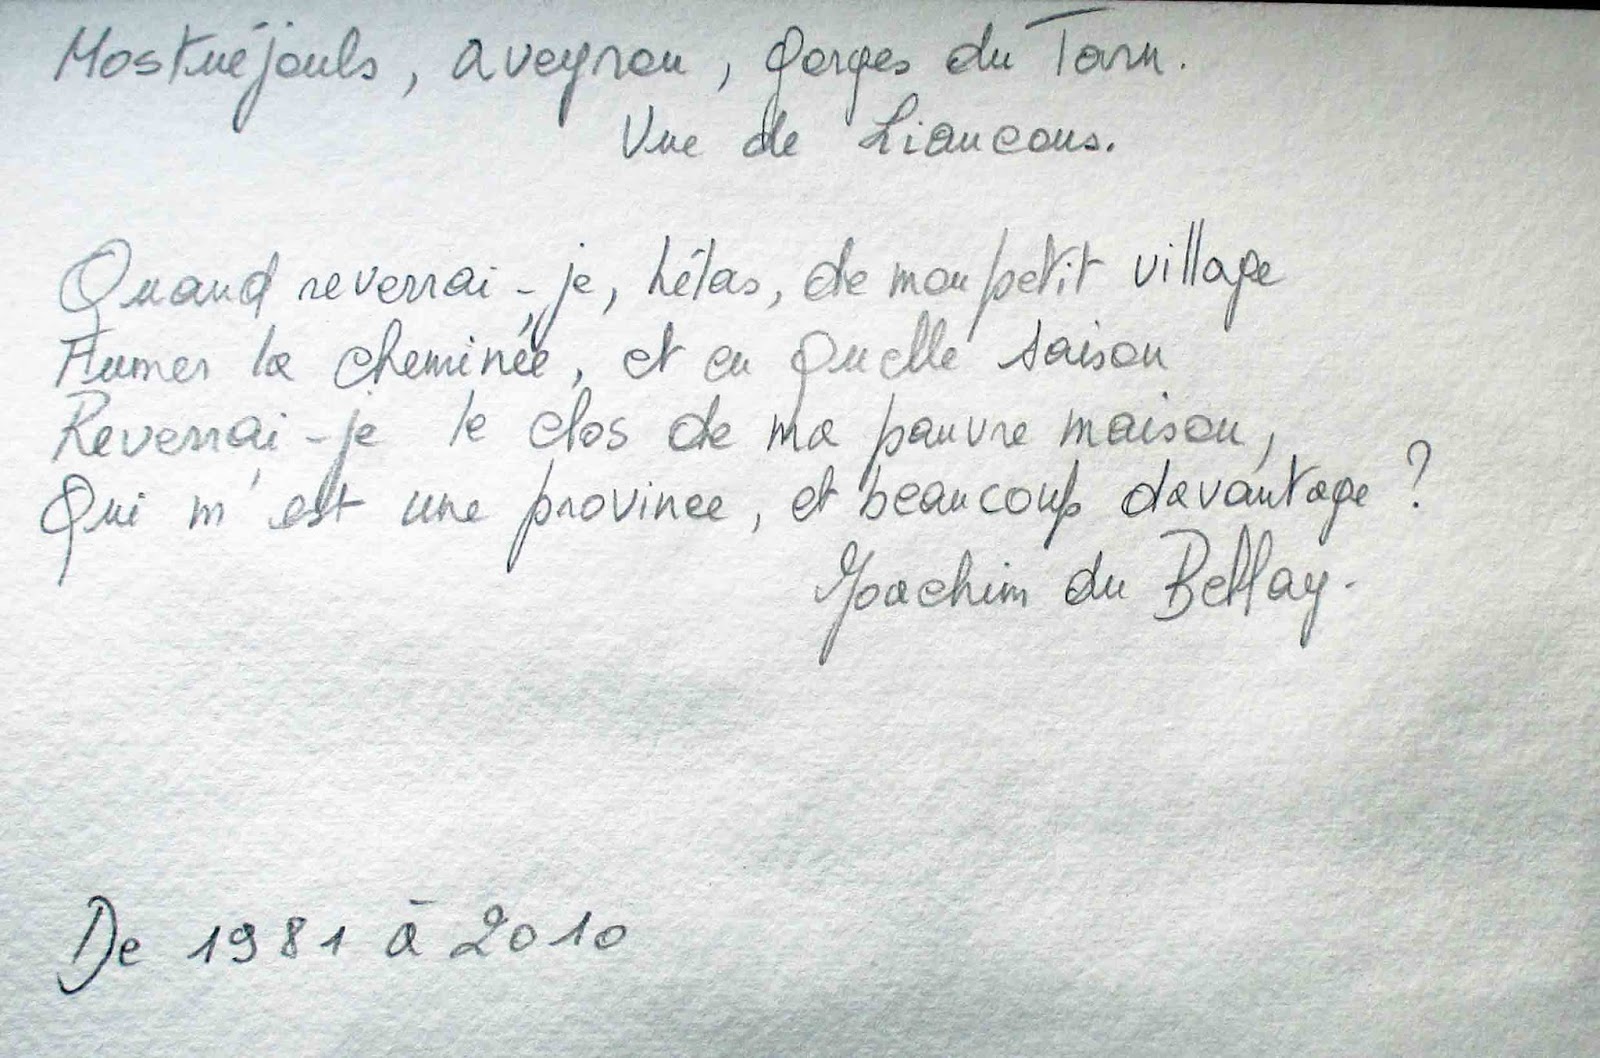 Mostuéjouls, aveyron, Gorges du Tarn.
Vue de Liaucous.
Quand reverrai-je, hélas, de mon petit village
Fumer la cheminée, et en quelle saison
Reverrai-je le clos de ma pauvre maison,
Qui m'est une province, et beaucoup davantage ?
Joachim du Bellay.
De 1981 à 2010